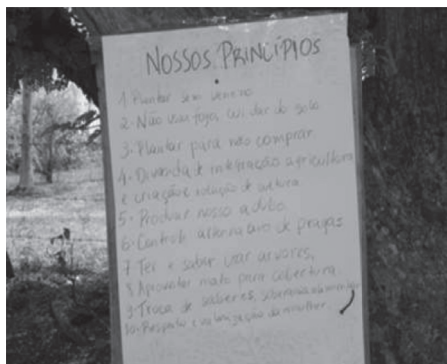 NOSSOS PRINCÍPIOS
1. Plantar sem veneno
2. Não usar fogo, cuidar do solo
3. Plantar para não comprar
4. Diversidade integração agricultura
e criação e rotação de cultura
5. Produzir nosso adubo
6. Controle alternativo de pragas
7 Ter e saber usar arvores,
8. Aproveitar mato para cobertura
9. Troca de saberes,
10. Respeito e valorização da mulher.